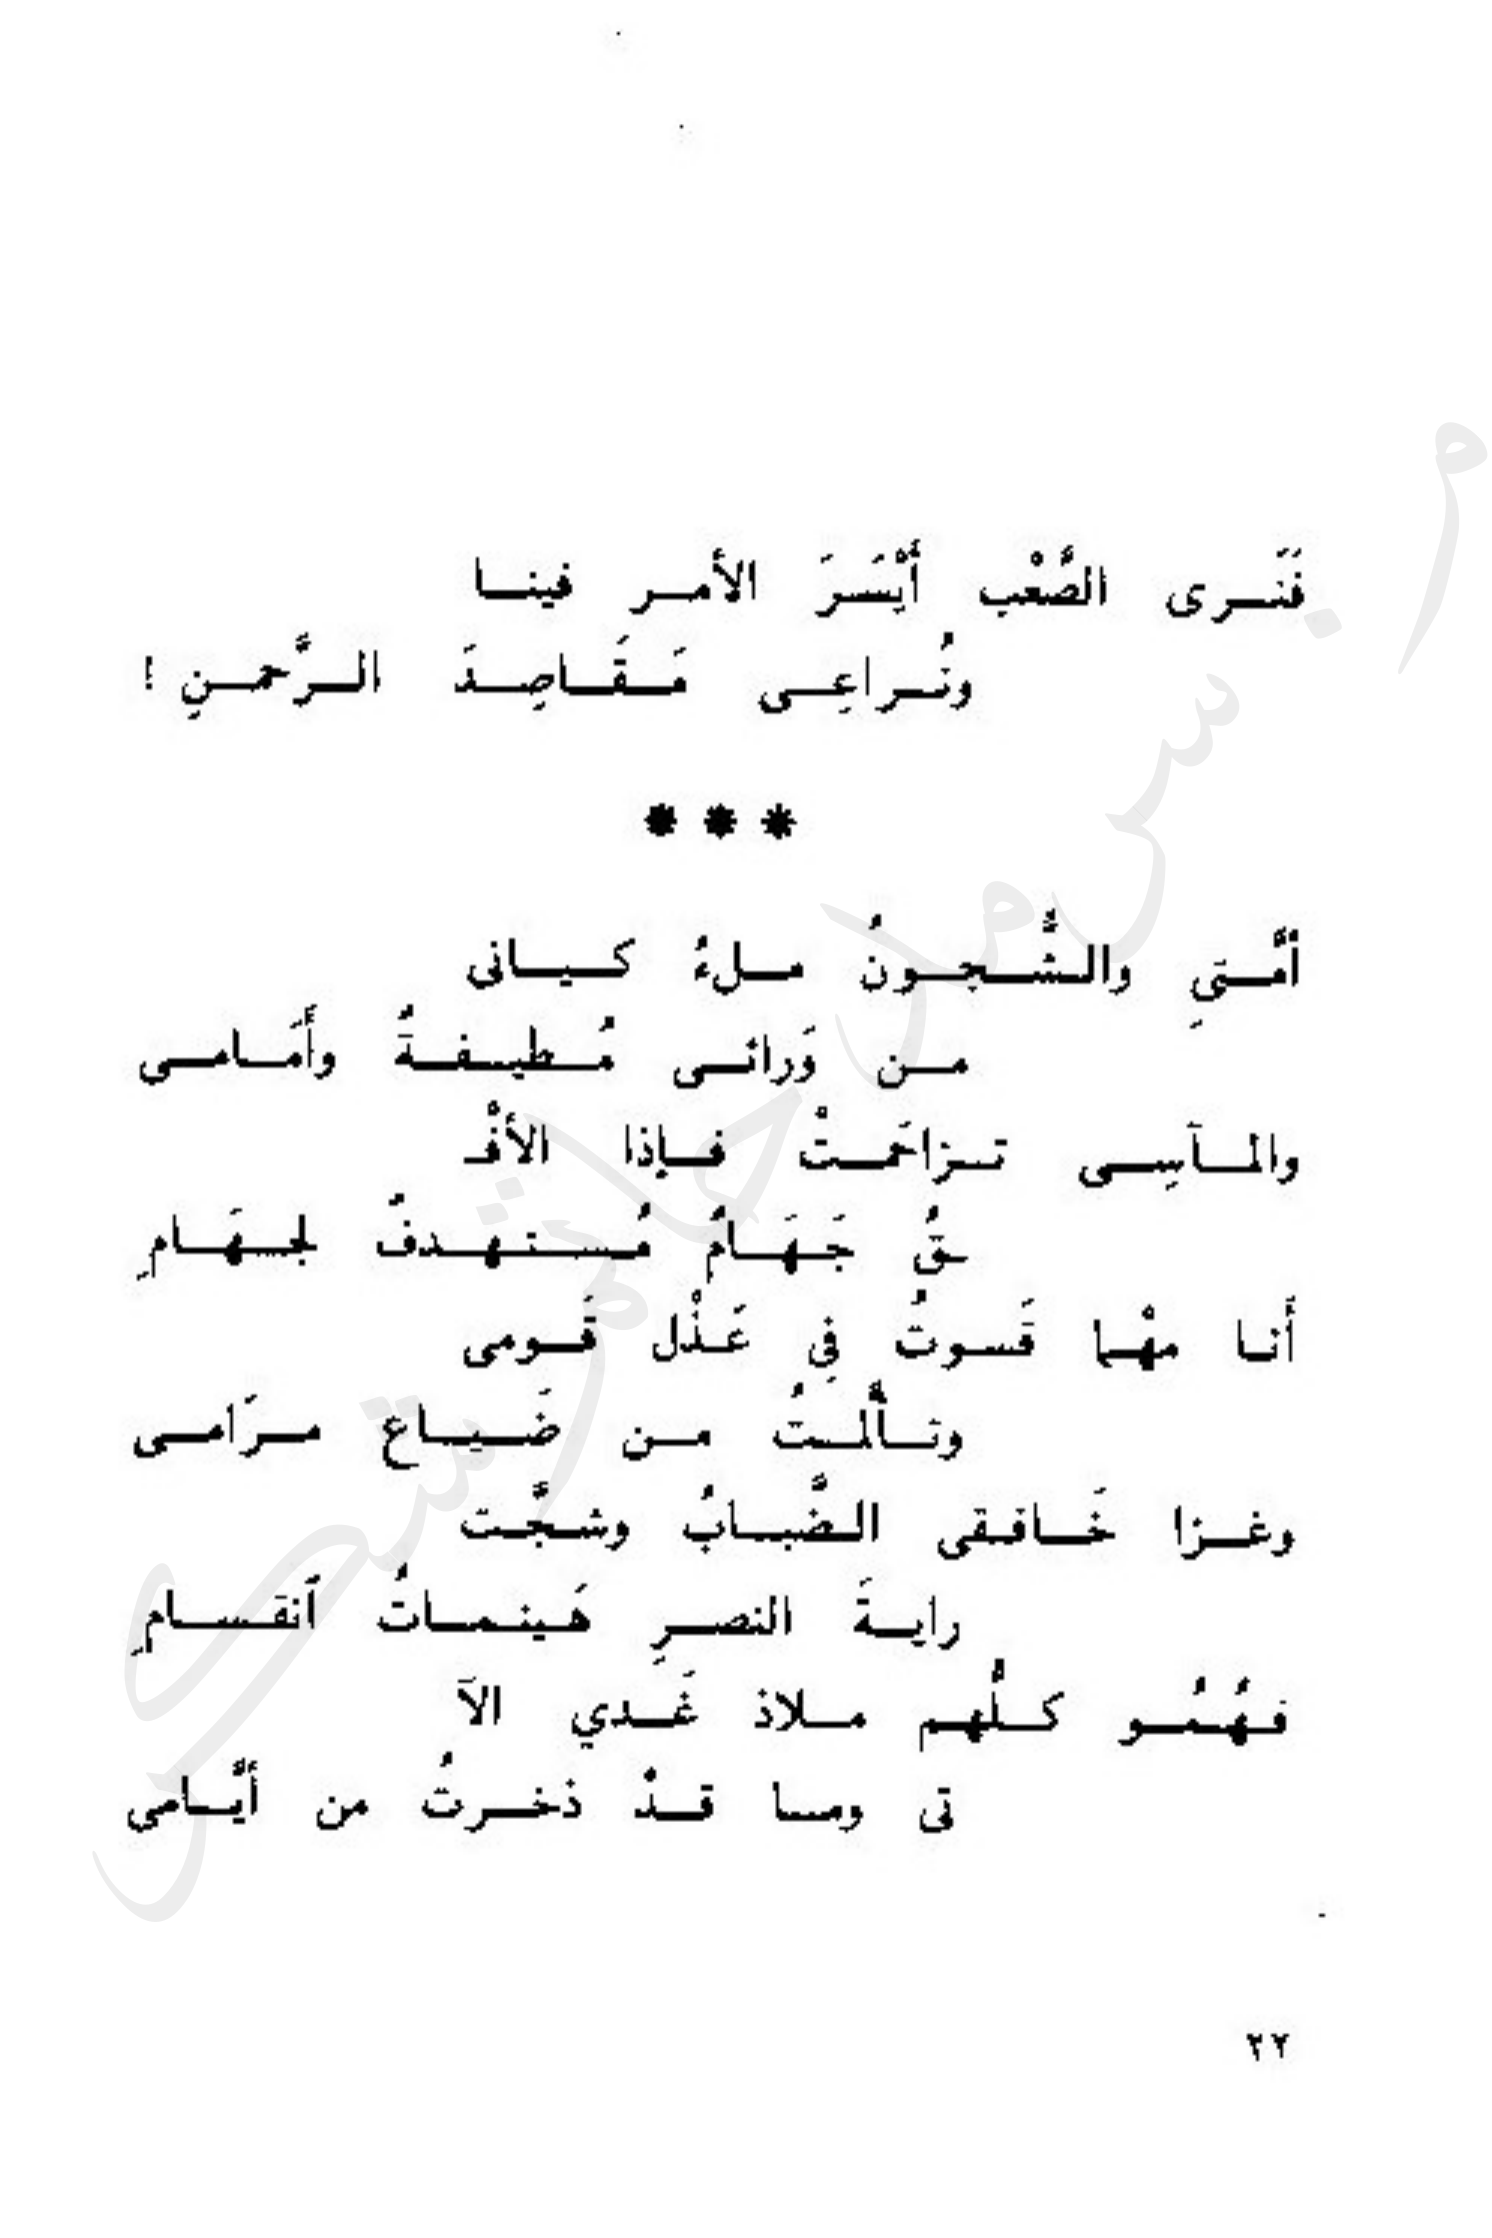 فَنَرى الصَّعْب أَيْسَرَ الأمر فينا
ونُراعِى مَقَاصِدَ الرَّحمنِ !
***
أمَّتىِ والشُّجونُ ملءُ كيانى
من وَرائى مُطيفةُ وأَمَامى
والمآسِى تزاحَمتْ فإذا الأفْـ
ـقُ جَهَامُ مُستهدفُ لجهَامِ
أنا مهْما قَسوتُ فىِ عَذْل قَومى
وتألمتُ من ضَياع مرَامى
وغزا خَافقى الضَّبابُ وشجَّت
رايةَ النصرِ هَينماتُ آنقسامِ
فهُمُو كلُّهم ملاذ غَدي الآ
تى وما قدْ ذخرتُ من أيَّامى
٢٢